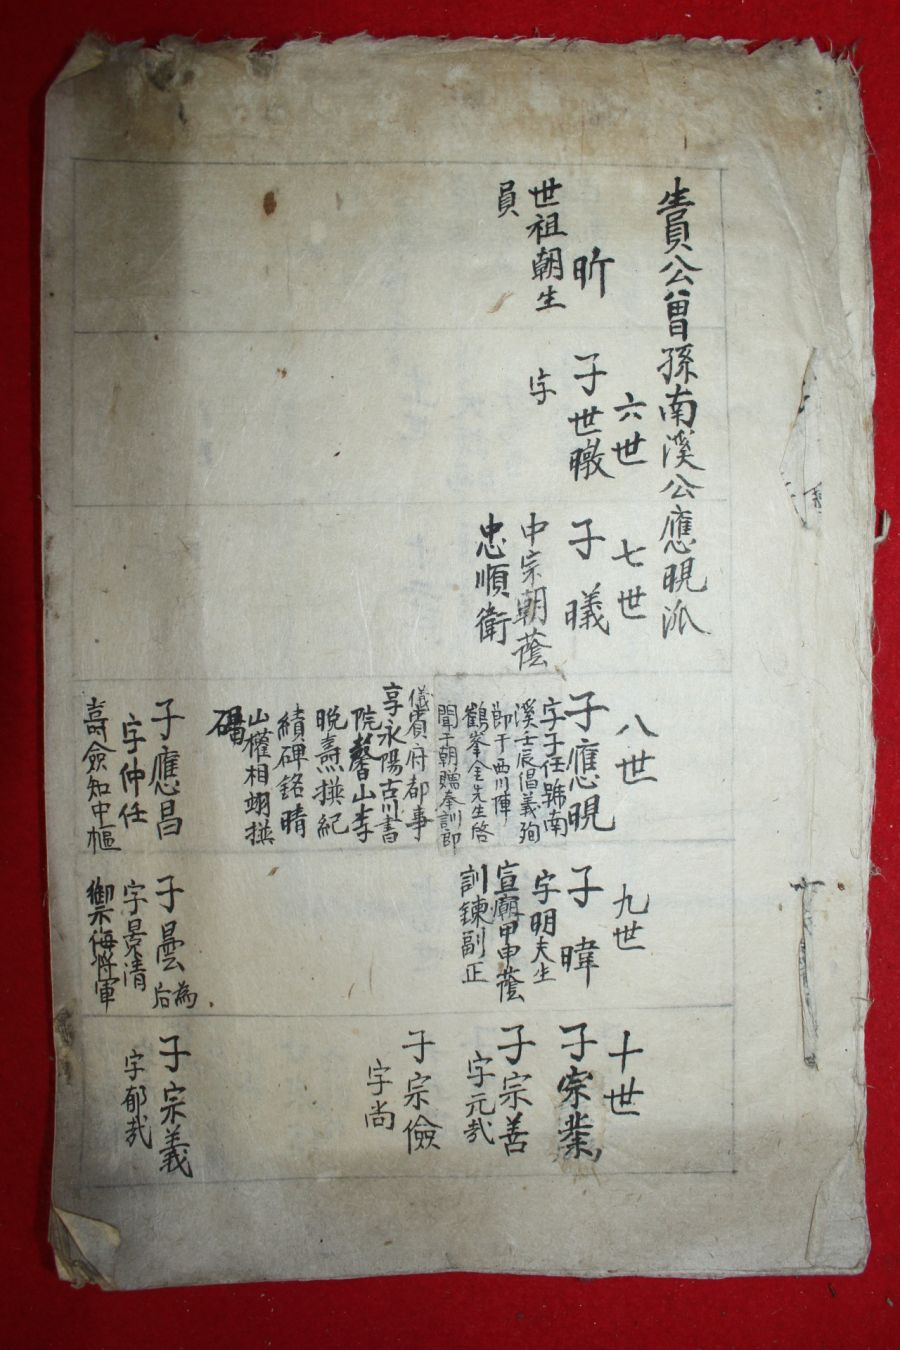 生員公曾孫南溪公應晛派
昕
世祖朝生
員
六世
子世暾
字
七世
子曦
中宗朝蔭
忠順衛
八世
子應晛
字子任號南
溪壬辰倡義殉
節于西川陣
鶴峯金先生啓
聞于朝贈奉訓郎
儀賓府都事
享永陽古川書
院馨山李
晩燾撰紀
績碑銘晴
山權相翊撰
碣
子應昌
字仲任
壽僉知中樞
九世
子暐
字明夫生
宣廟甲申蔭
訓鍊副正
子曇
為
后
字景清
禦侮將軍
十世
子宗業
子宗善
字元哉
子宗儉
字尚
子宗義
字郁哉